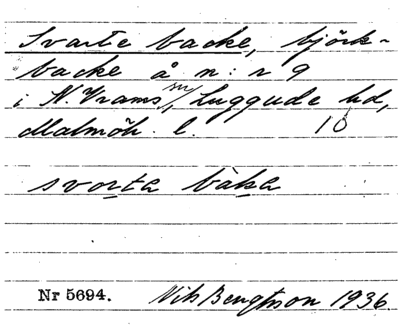 Svarte backe, björk-
backe å n:r 9
i N. Vrams sn, Luggude hd,
Malmöh. l. 10
svorta båka
Nr 5694. Nils Bengtsson 1936.